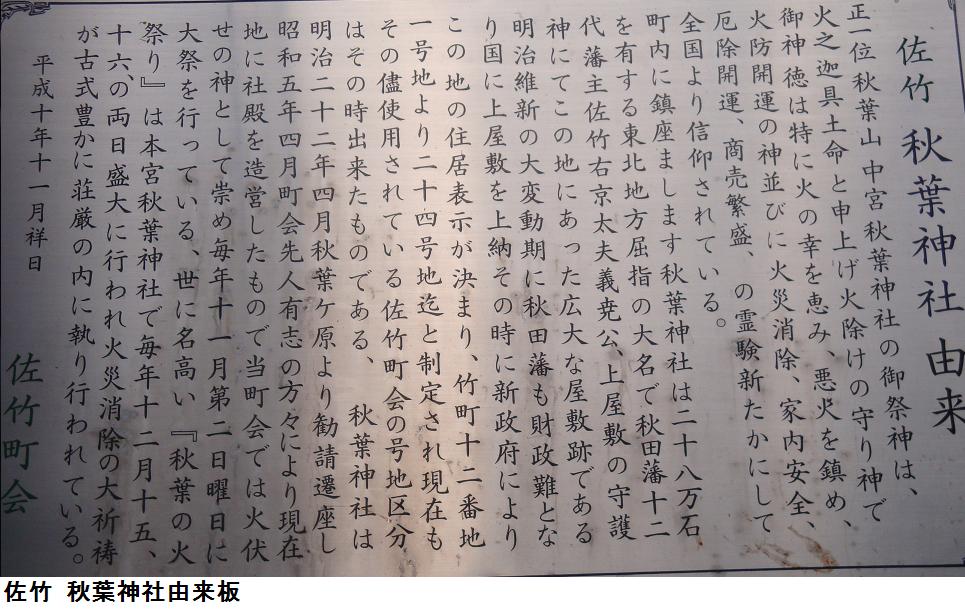 佐竹 秋葉神社 由来
正一位秋葉山中宮秋葉神社の御祭神は、
火之迦具土命と申上げ火除けの守り神で
御神徳は特に火の幸を恵み、悪火を鎮め、
火防開運の神並びに火災消除、家内安全、
厄除開運、商売繁盛、の霊験新たかにして
全国より信仰されている。
町内に鎮座まします秋葉神社は二十八万石
を有する東北地方屈指の大名で秋田藩十二
代藩主佐竹右京太夫義尭公、上屋敷の守護
神にてこの地にあった広大な屋敷跡である
明治維新の大変動期に秋田藩も財政難とな
り国に上屋敷を上納その時に新政府により
この地の住居表示が決まり、竹町十二番地
一号地より二十四号地迄と制定され現在も
その儘使用されている佐竹町会の号地区分
はその時出来たものである、 秋葉神社は
明治二十二年四月秋葉ケ原より勧請遷座し
昭和五年四月町会先人有志の方々により現在
地に社殿を造営したもので当町会では火伏
せの神として崇め毎年十一月第二日曜日に
大祭を行っている、世に名高い『秋葉の火
祭り』は本宮秋葉神社で毎年十二月十五、
十六、の両日盛大に行われ火災消除の大祈祷
が古式豊かに荘厳の内に執り行われている。
平成十年十一月祥日
佐竹町会
佐竹 秋葉神社由来板